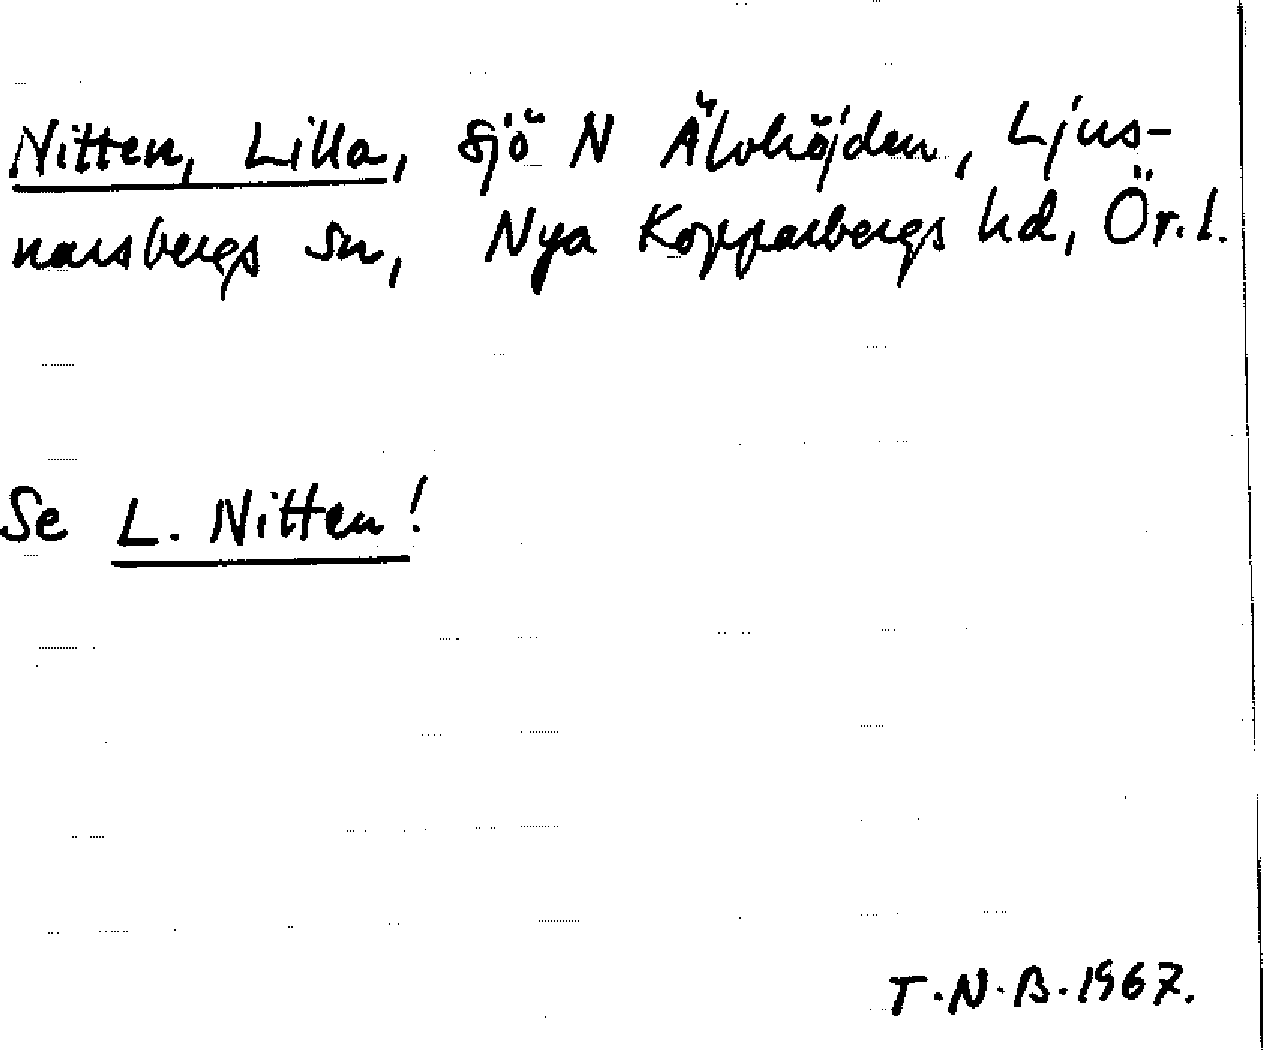 Nitten, Lilla, sjö N Älvhöjden, Ljus-
narsbergs sn, Nya Kopparbergs hd, Ör. l.
Se L. Nitten!
T.N.B. 1967.